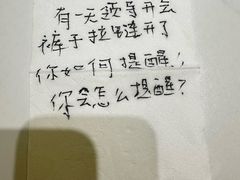 有一天领导开会
裤子拉链开了
你如何提醒！
你会怎么提醒？